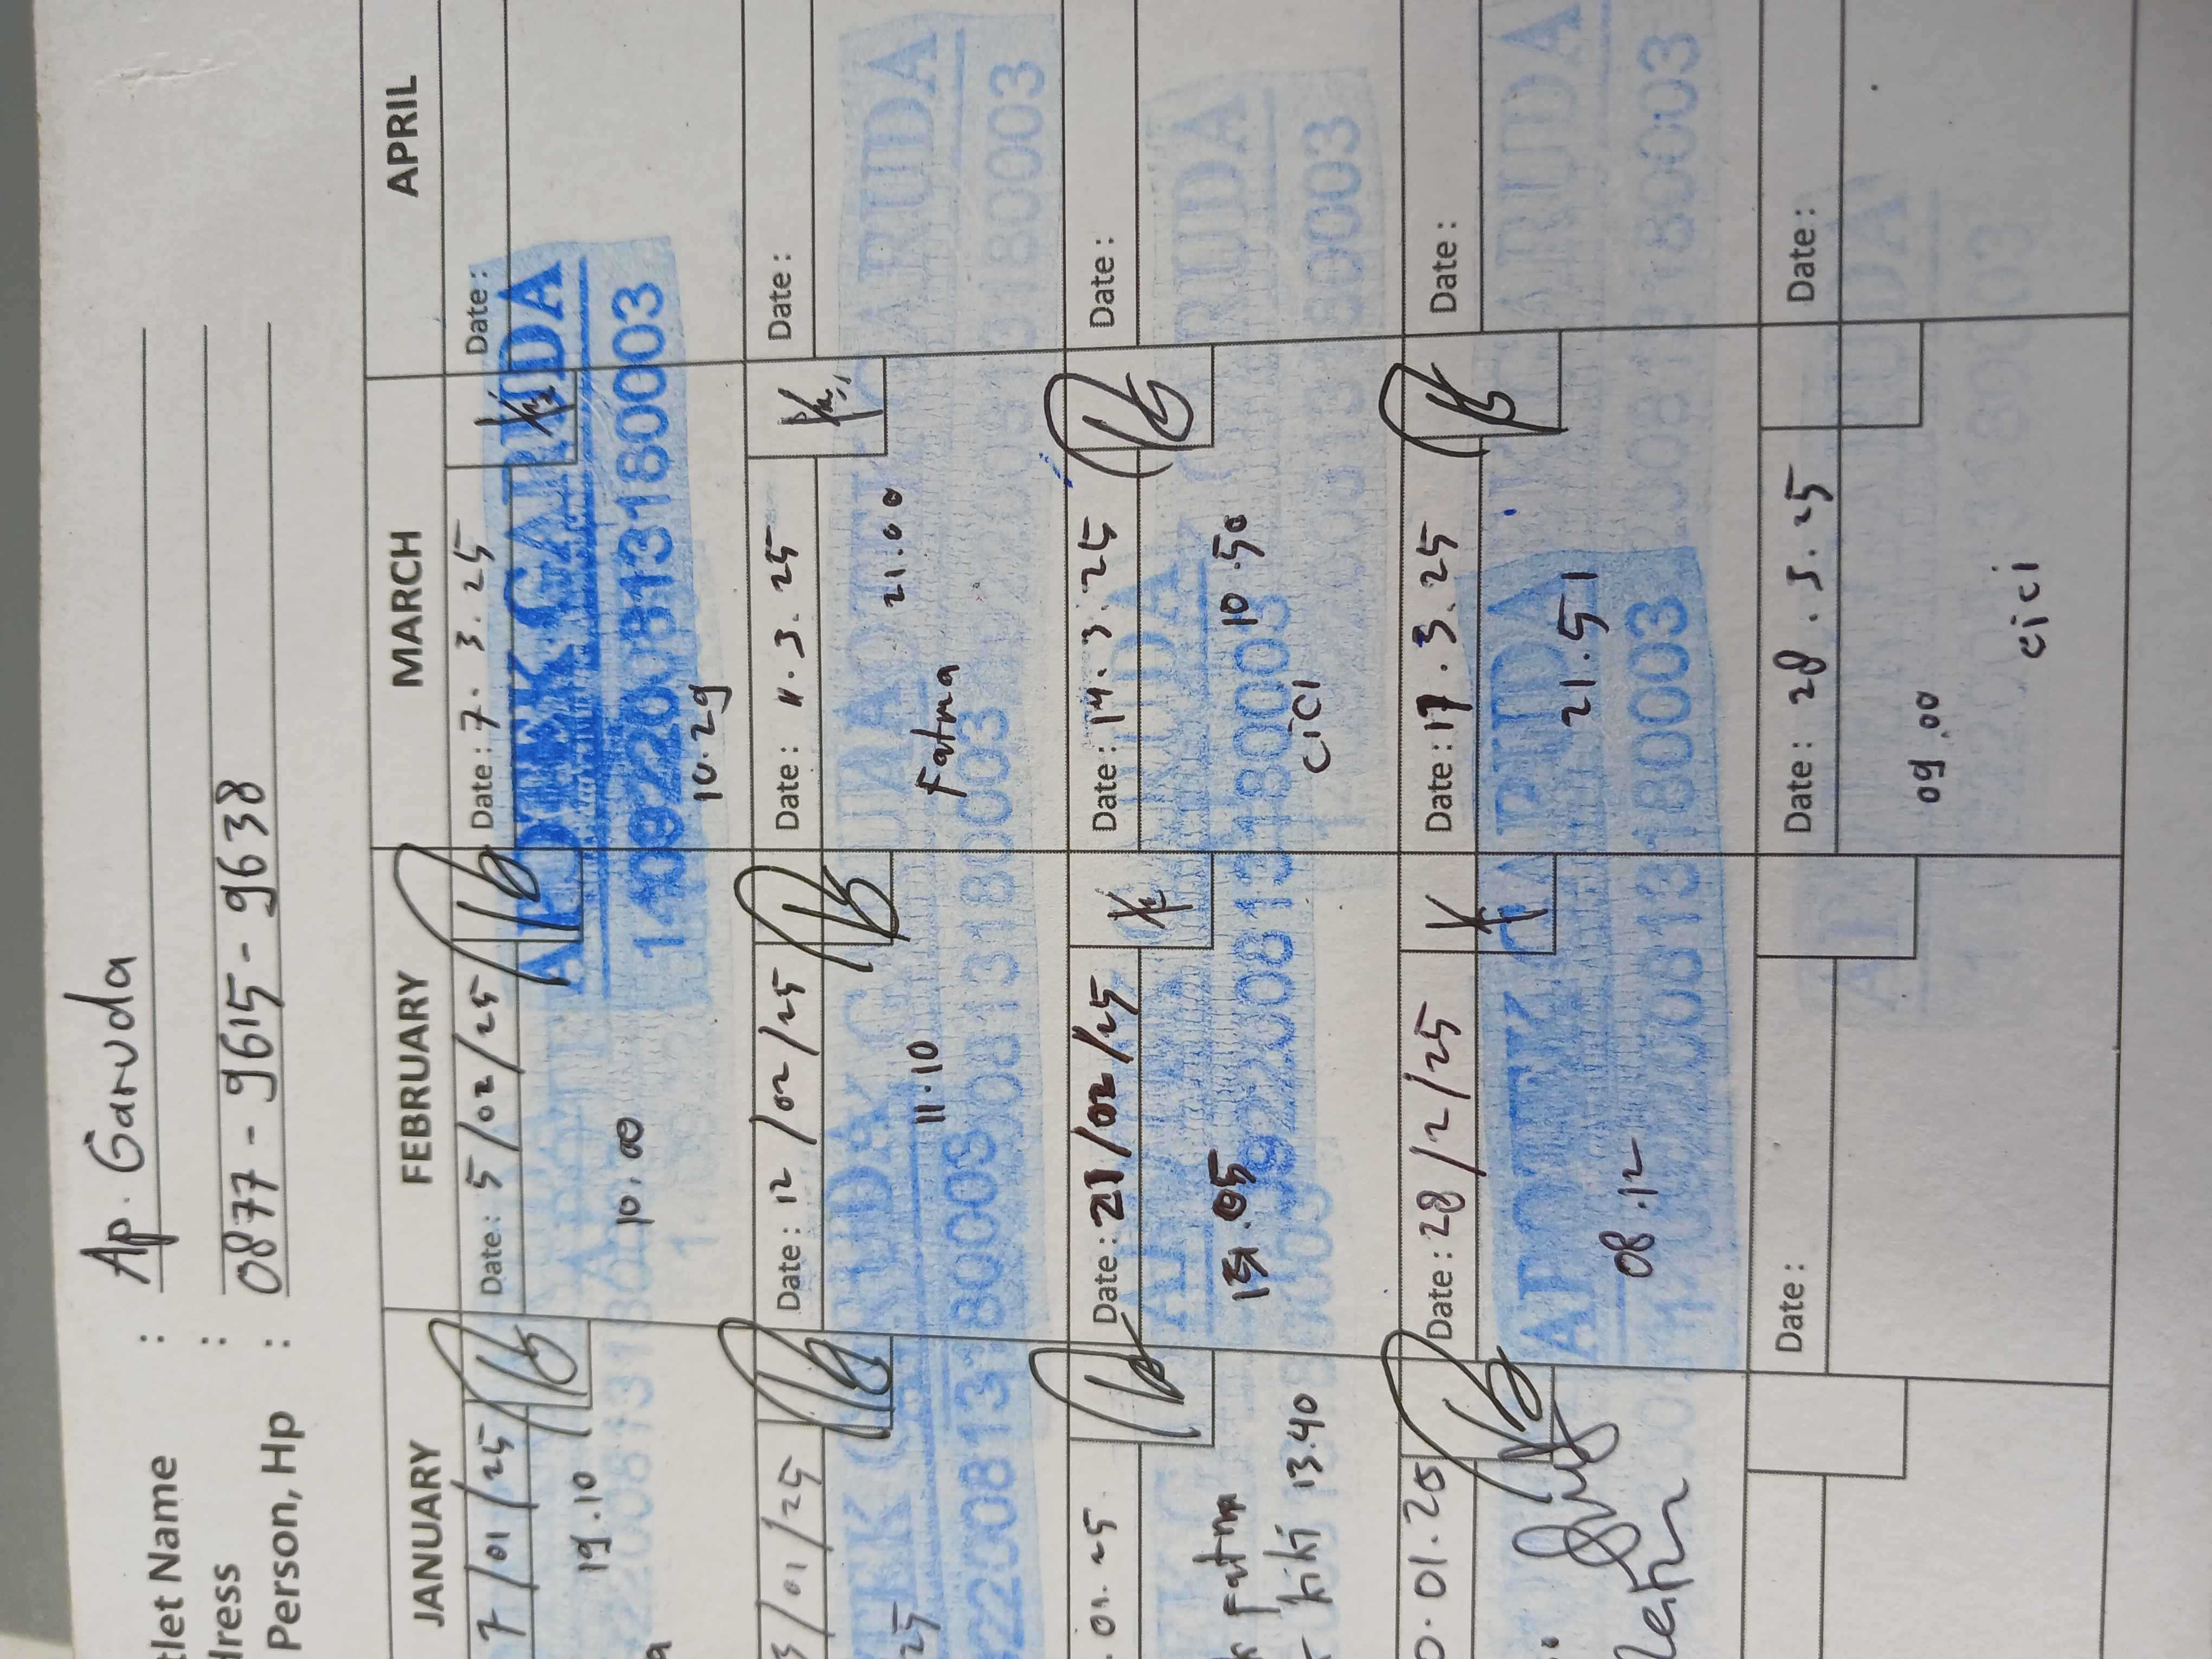 tlet Name : Ap. Garuda
dress :
Person, Hp : 0877-9615-9638
JANUARY FEBRUARY MARCH APRIL
7/01/25 Date: 5/02/25 Date: 7.3.25 Date:
APOTEK GARUDA
1409220081318 0003
19.10 10.00 10.29
3/01/25 Date: 12/02/25 Date: 11.3.25 Date:
TEK GARUDA ARUDA
25 11.10 21.00
2200813180003 180003
Fatma
01.25 Date: 21/02/25 Date: 14.3.25 Date:
ARUDA
.05 10.50
Fatma
kiki 13.40 cici
01.25 Date: 28/2/25 Date: 17.3.25 Date:
APOTEK GARUDA ARUDA
08.12 21.51
Date: Date: 28.3.25 Date:
09.00
cici